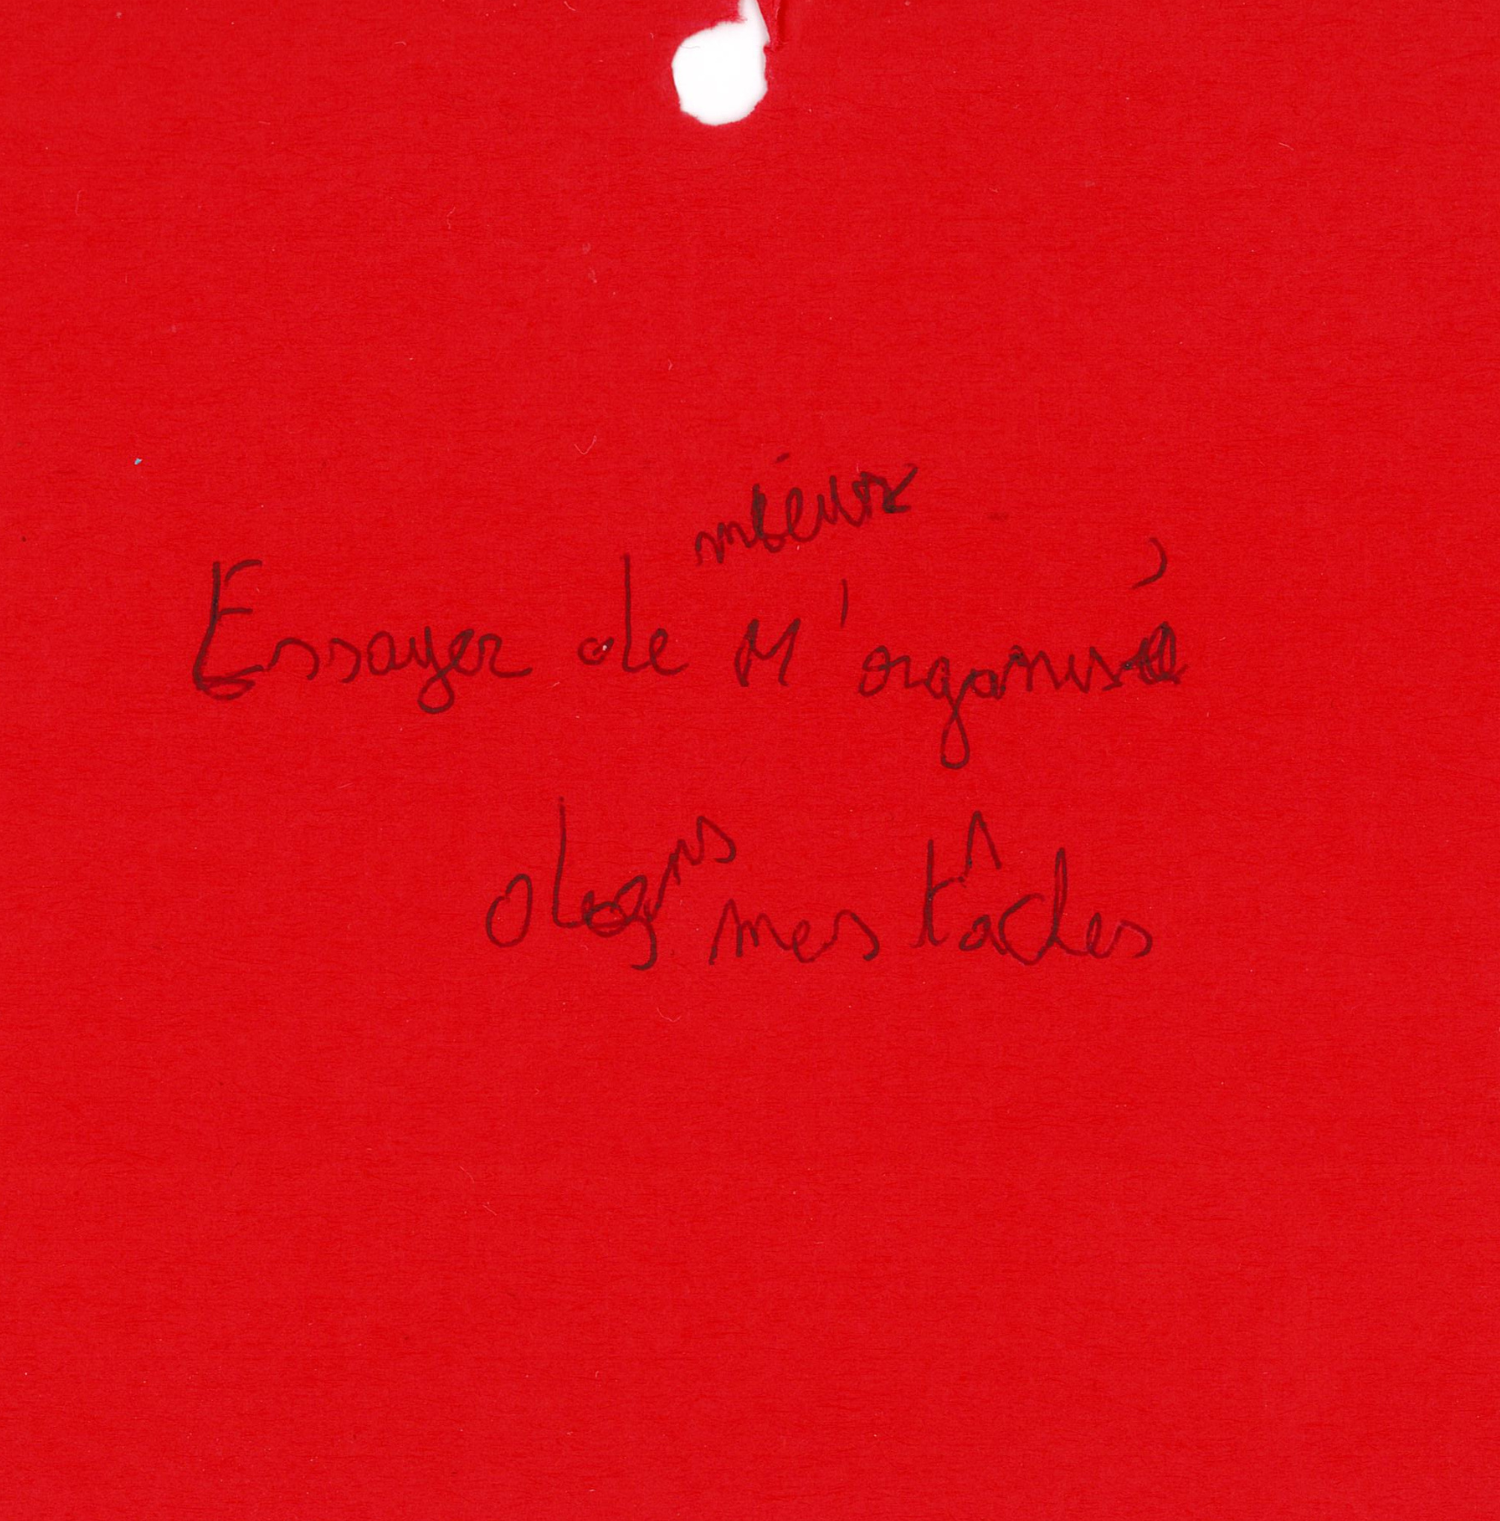 Essayer de mieux M'organisé
dans mes tâches